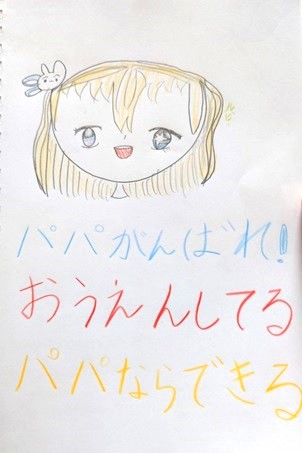 パパがんばれ!
おうえんしてる
パパならできる